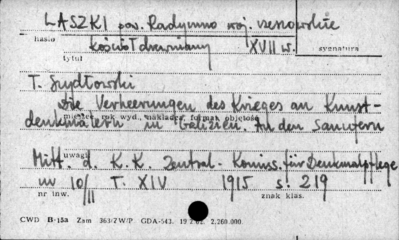 ŁASZKI pow. Radymno woj. rzeszowskie
hasło
kościół drewniany XVII w.
sygnatura
tytuł
T. Szydłowski
Die Verheerungen des Krieges an Kunst-
miejsce, rok wyd., nakładca, format, objętość
denkmälern in Galizien. An den Sanufern
uwagi
Mitt. d. K. K. Zentral-Komiss. für Denkmalpflege
nr 10/11 T. XIV 1915 s. 219
nr inw. znak klas.
CWD B-15a Zam 363/Z/W/P. GDA-543. 2.260.000.